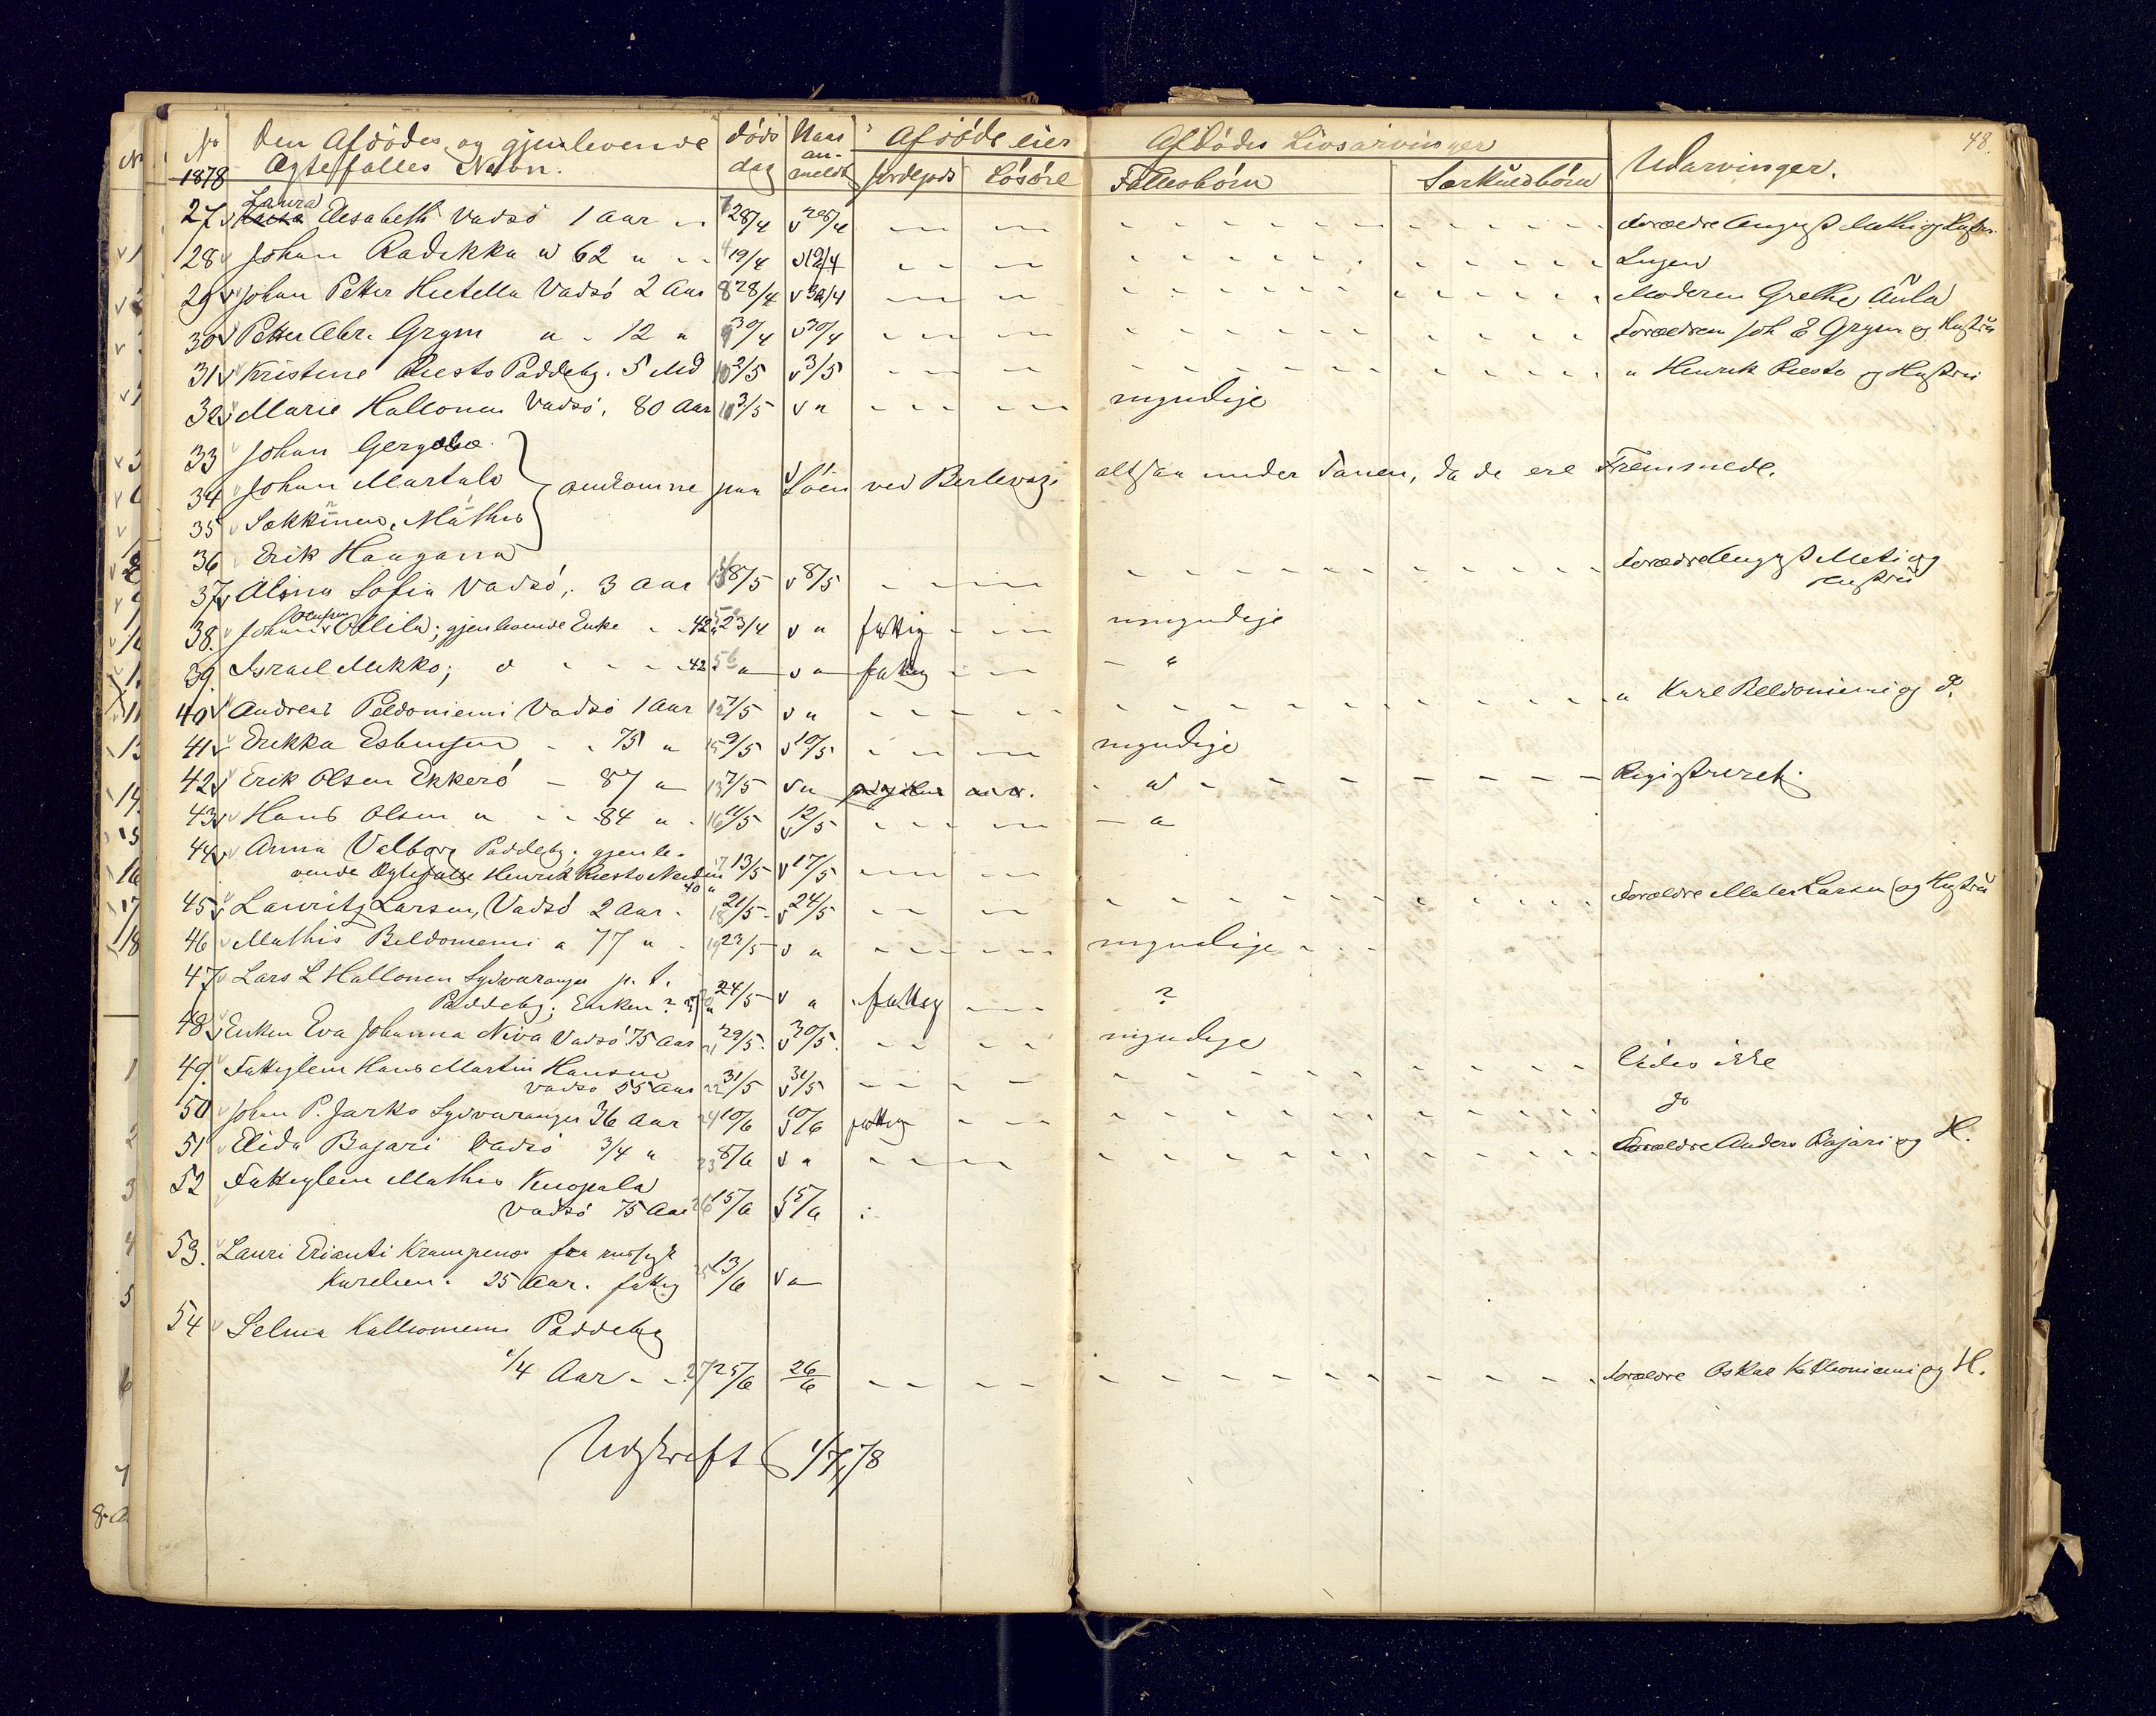 No 1878 Den Afdødes og gjenlevende Ægtefælles Navn. Døds dag Naar an- meldt Afdøde eier Jordegods Løsøre Afdødes Livsarvinger Fællesbørn Særkuldbørn Udarvinger. 48.
27 Laura Elisabeth Vadsø 1 Aar 28/4 28/4 Forældre August Mathi og Hustru
28 Johan Radikka " 62 " 19/4 19/4 Ingen
29 Johan Petter Hietella Vadsø 2 Aar 28/4 30/4 Moderen Grethe Aula
30 Petter Abr. Grym " 12 " 30/4 30/4 Forældren Joh E Grym og Hustru
31 Kristine Riesto Paddeby. 5 Md 2/5 3/5 " Henrik Riesto og Hustru
32 Marie Hallonen Vadsø, 80 Aar 3/5 " myndige
33 Johan
34 Johan Martala } omkomne paa Søen ved Berlevag altsaa under Tanen, da de ere Fremmede.
35 Sækkinen, Mathis
36 Erik Haagana
37 Alina Sofia Vadsø, 3 Aar 8/5 8/5 Forældre August Meti og Hustru
38. Johan Ollila; gjenlevende Enke 42 23/4 " fattig umyndige
39. Israel Mikko; d 42 " " fattig - "
40 Andreas Peldoniemi Vadsø 1 Aar 7/5 " " Karl Beldoniemi og d.
41 Erikka Esbensen - 75 " 9/5 10/5 myndige
42 Erik Olsen Ekkerø - 87 " 7/5 " " Registreret.
43 Hans Olsen " 84 " 11/5 12/5 - "
44 Anna Valborg Paddeby; gjenle-
vende Ægtefælle Henrik Riesto 40 13/5 17/5
45 Lauritz Larsen, Vadsø 2 Aar. 21/5 24/5 Forældre Larsen og Hustru
46 Mathis Beldomemi " 77 " 23/5 " myndige
47 Lars L Hallonen Sydvaranger p. t.
Paddeby; Enken? 24/5 " fattig ?
48 Enken Eva Johanna Niva Vadsø 75 Aar 29/5 30/5. myndige
49. Fattiglem Hans Martin Hansen
Vadsø 55 Aar 22 31/5 31/5 Vides ikke
50 Johan P. Jarko Sydvaranger 36 Aar 24 10/6 10/6 fattig do
51 Elida Bajari Vadsø 3/4 " 23 8/6 " Forældre Anders Bajari og H.
52 Fattiglem Mathis Kuopala
Vadsø 75 Aar 26 15/6 15/6
53. Lauri Erianti fra russisk
Karelien. 25 Aar. fattig 25 13/6 "
54 Selma Kalliomemi Paddeby
1/4 Aar 27 25/6 26/6 Forældre Oskar Kalleoniemi og H.
Udskrift 1/7 78